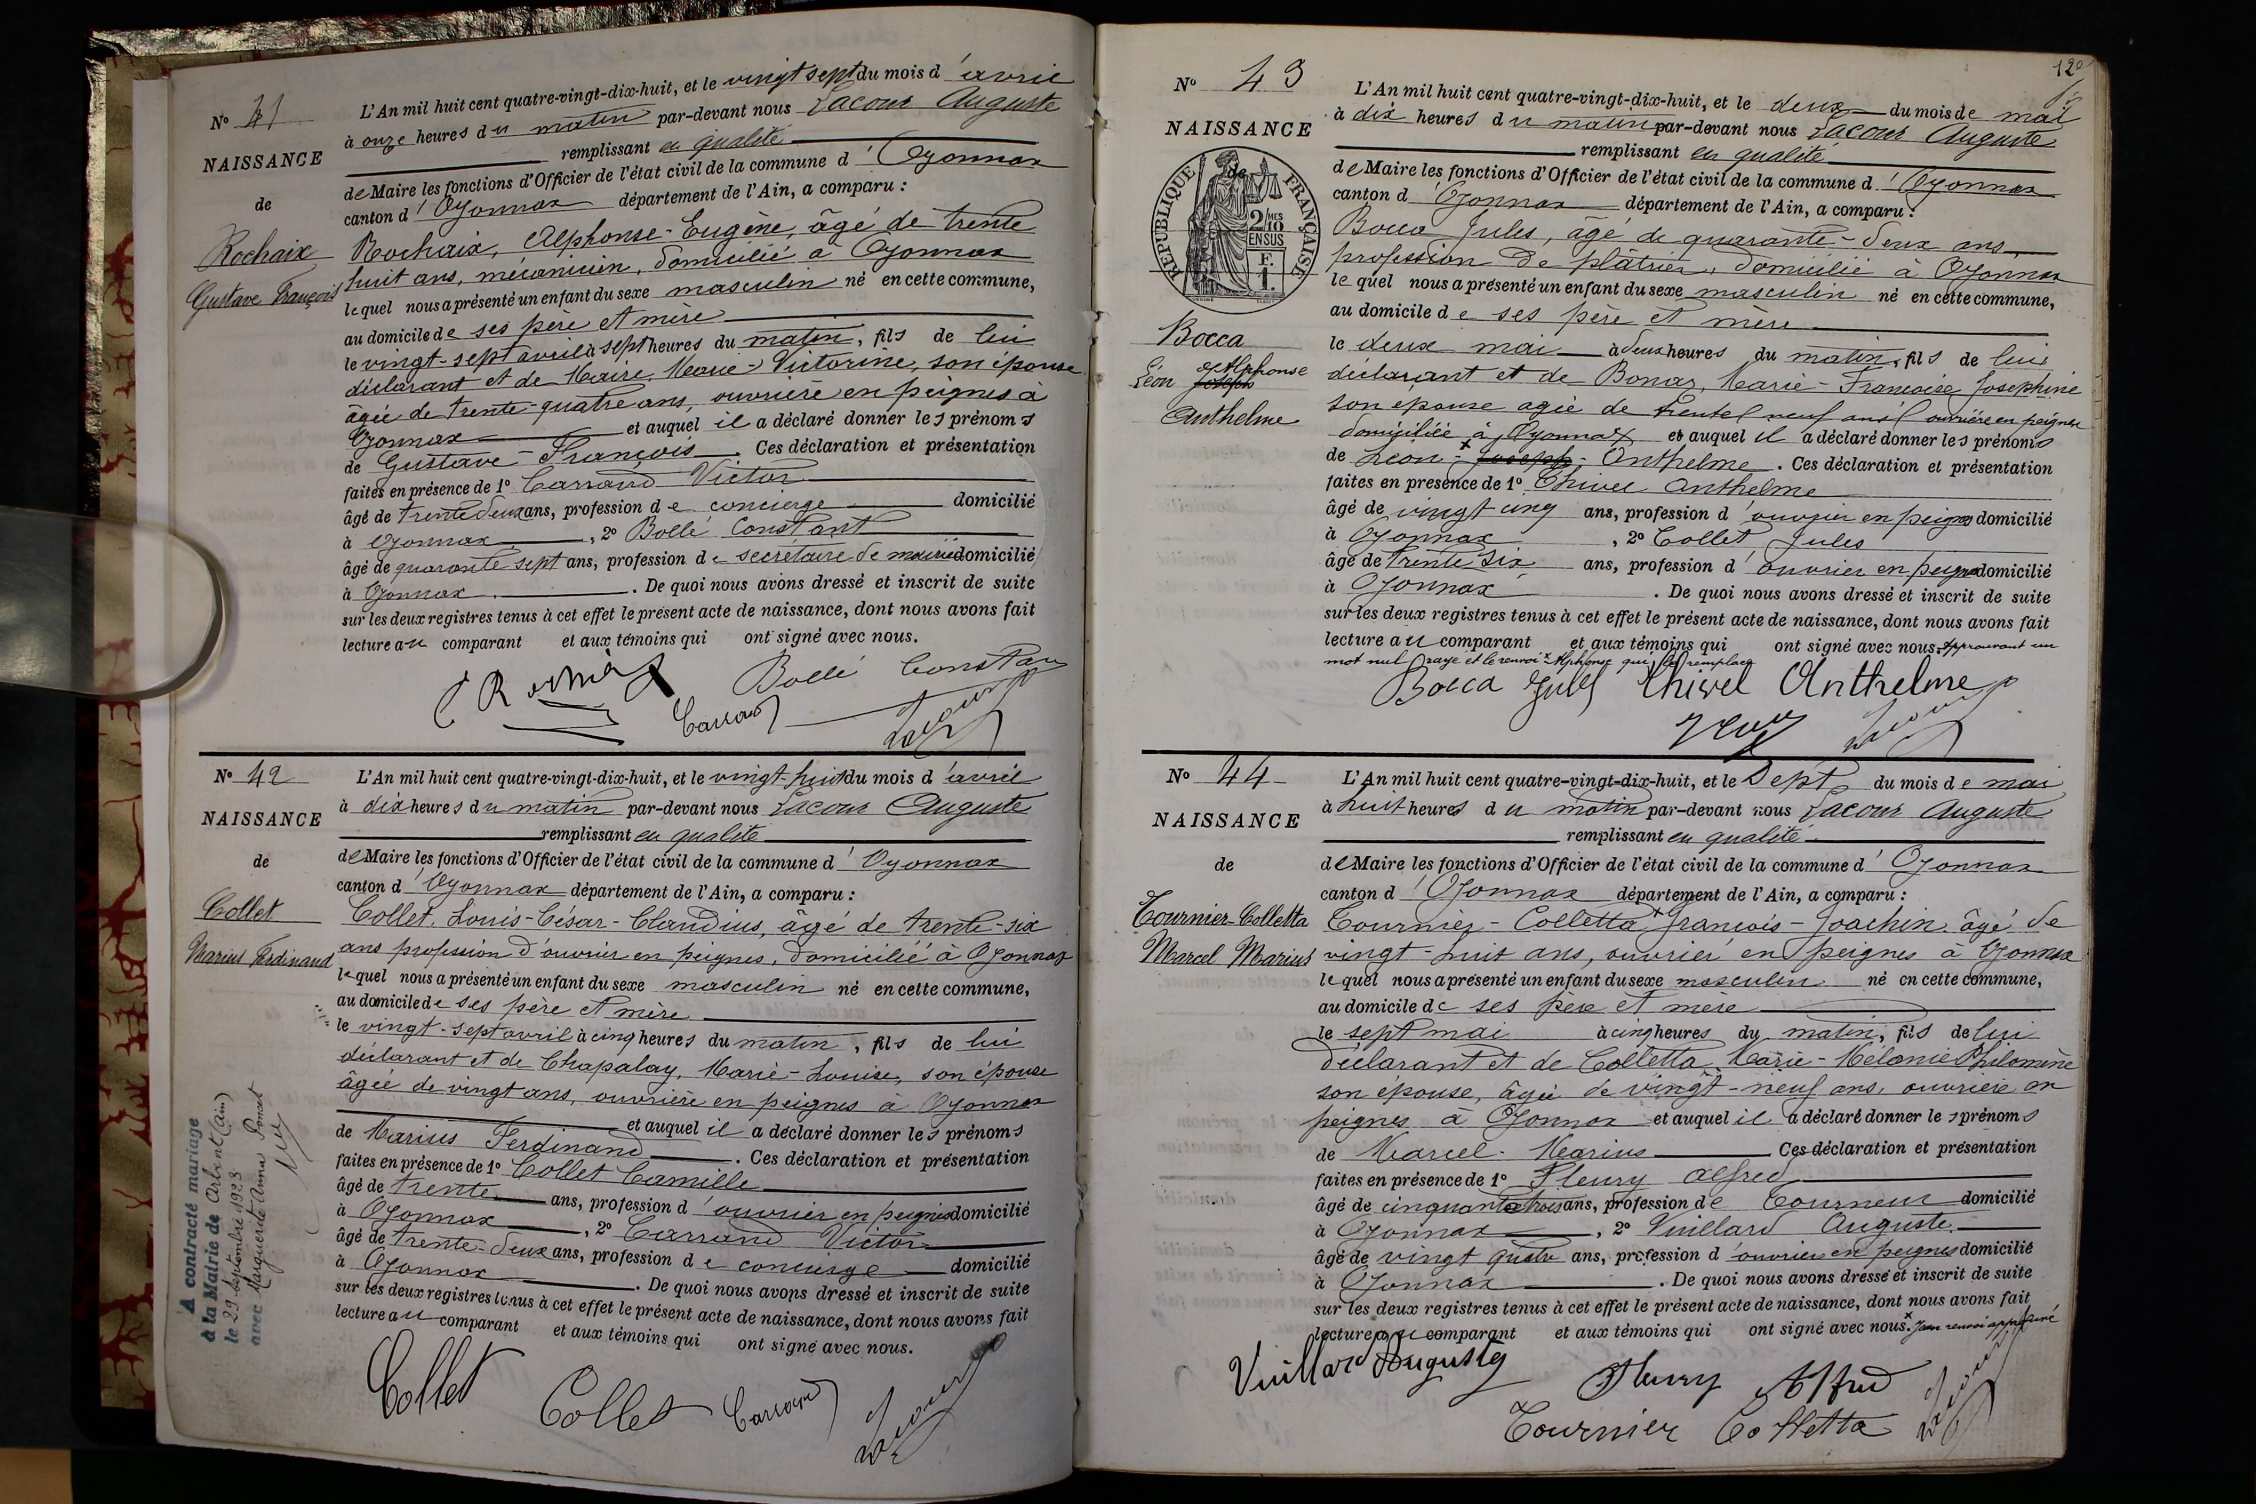 N° 41
NAISSANCE
de
Rochaix
Gustave François
L'An mil huit cent quatre-vingt-dix-huit, et le vingt sept du mois d'avril
à onze heures du matin par-devant nous Lacour Auguste
remplissant en qualité
de Maire les fonctions d'Officier de l'état civil de la commune d'Oyonnax
canton d'Oyonnax département de l'Ain, a comparu :
Rochaix, Alphonse-Eugène, âgé de trente
huit ans, mécanicien, domicilié à Oyonnax
lequel nous a présenté un enfant du sexe masculin né en cette commune,
au domicile de ses père et mère
le vingt-sept avril à sept heures du matin, fils de lui
déclarant et de Maire, Marie-Victorine, son épouse
âgée de trente-quatre ans, ouvrière en peignes à
Oyonnax et auquel il a déclaré donner les prénoms
de Gustave-François. Ces déclaration et présentation
faites en présence de 1° Carrand Victor
âgé de trente deux ans, profession de concierge domicilié
à Oyonnax, 2° Bollé Constant
âgé de quarante sept ans, profession de secrétaire de mairie domicilié
à Oyonnax. De quoi nous avons dressé et inscrit de suite
sur les deux registres tenus à cet effet le présent acte de naissance, dont nous avons fait
lecture au comparant et aux témoins qui ont signé avec nous.
Bollé Constant
Carrand
Lacour
N° 42
NAISSANCE
de
Collet
Marius Ferdinand
A contracté mariage
à la Mairie de Arbent (Ain)
le 29 septembre 1923
avec Marguerite Anna Poncet
L'An mil huit cent quatre-vingt-dix-huit, et le vingt-huit du mois d'avril
à dix heures du matin par-devant nous Lacour Auguste
remplissant en qualité
de Maire les fonctions d'Officier de l'état civil de la commune d'Oyonnax
canton d'Oyonnax département de l'Ain, a comparu :
Collet, Louis-César-Claudius, âgé de trente-six
ans profession d'ouvrier en peignes, domicilié à Oyonnax
lequel nous a présenté un enfant du sexe masculin né en cette commune,
au domicile de ses père et mère
le vingt-sept avril à cinq heures du matin, fils de lui
déclarant et de Chapalay, Marie-Louise, son épouse
âgée de vingt ans, ouvrière en peignes à Oyonnax
et auquel il a déclaré donner les prénoms
de Marius Ferdinand. Ces déclaration et présentation
faites en présence de 1° Collet Camille
âgé de trente ans, profession d'ouvrier en peignes domicilié
à Oyonnax, 2° Carrand Victor
âgé de trente-deux ans, profession de concierge domicilié
à Oyonnax. De quoi nous avons dressé et inscrit de suite
sur les deux registres tenus à cet effet le présent acte de naissance, dont nous avons fait
lecture au comparant et aux témoins qui ont signé avec nous.
Collet Collet Carrand Lacour
120
N° 43
NAISSANCE
de
RÉPUBLIQUE FRANÇAISE
2/10 MES
EN SUS
F.
1.
Bocca
Léon Alphonse
Joseph
Anthelme
L'An mil huit cent quatre-vingt-dix-huit, et le deux du mois de mai
à dix heures du matin par-devant nous Lacour Auguste
remplissant en qualité
de Maire les fonctions d'Officier de l'état civil de la commune d'Oyonnax
canton d'Oyonnax département de l'Ain, a comparu :
Bocca Jules, âgé de quarante-deux ans,
profession de plâtrier, domicilié à Oyonnax
lequel nous a présenté un enfant du sexe masculin né en cette commune,
au domicile de ses père et mère
le deux mai à deux heures du matin, fils de lui
déclarant et de Bonaz, Marie-Françoise Joséphine
son épouse âgée de trente neuf ans ouvrière en peignes
domiciliée à Oyonnax et auquel il a déclaré donner les prénoms
de Léon-x Joseph-Anthelme. Ces déclaration et présentation
faites en présence de 1° Chivel Anthelme
âgé de vingt cinq ans, profession d'ouvrier en peignes domicilié
à Oyonnax, 2° Collet Jules
âgé de trente six ans, profession d'ouvrier en peignes domicilié
à Oyonnax. De quoi nous avons dressé et inscrit de suite
sur les deux registres tenus à cet effet le présent acte de naissance, dont nous avons fait
lecture au comparant et aux témoins qui ont signé avec nous. Approuvant un
mot nul rayé et le renvoi x Alphonse qui le remplace
Bocca Jules Chivel Anthelme
Lacour
N° 44
NAISSANCE
de
Tournier-Colletta
Marcel Marius
L'An mil huit cent quatre-vingt-dix-huit, et le Sept du mois de mai
à huit heures du matin par-devant nous Lacour Auguste
remplissant en qualité
de Maire les fonctions d'Officier de l'état civil de la commune d'Oyonnax
canton d'Oyonnax département de l'Ain, a comparu :
Tournier-Colletta x François-Joachin âgé de
vingt-huit ans, ouvrier en peignes à Oyonnax
lequel nous a présenté un enfant du sexe masculin né en cette commune,
au domicile de ses père et mère
le sept mai à cinq heures du matin, fils de lui
déclarant et de Colletta Marie-Mélanie Philomène
son épouse, âgée de vingt-neuf ans, ouvrière en
peignes à Oyonnax et auquel il a déclaré donner les prénoms
de Marcel-Marius Ces déclaration et présentation
faites en présence de 1° Fleury Alfred
âgé de cinquante trois ans, profession de Tourneur domicilié
à Oyonnax, 2° Vuillard Auguste
âgé de vingt quatre ans, profession d'ouvrier en peignes domicilié
à Oyonnax. De quoi nous avons dressé et inscrit de suite
sur les deux registres tenus à cet effet le présent acte de naissance, dont nous avons fait
lecture au comparant et aux témoins qui ont signé avec nous. x renvoi approuvé
Vuillard Auguste Fleury Alfred
Tournier Colletta Lacour